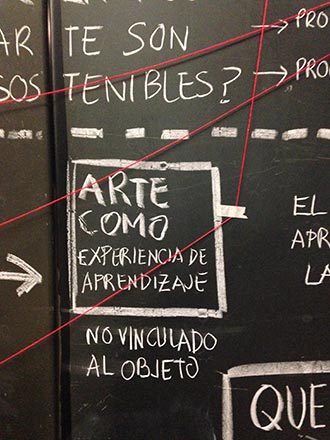 AR TE SON → PRO
SOS TENIBLES? → PRO
ARTE
COMO
EXPERIENCIA DE
APRENDIZAJE
NO VINCULADO
AL OBJETO
EL
APR
LA
QUE